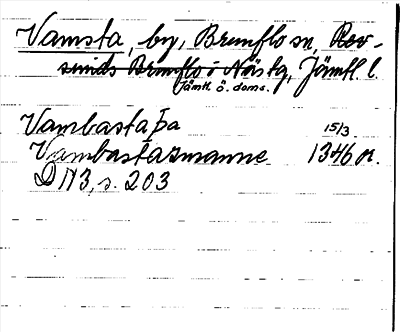 Vamsta, by, Brunflo sn, Rev-
sunds Brunflo o Näs tg, Jämtl. l.
Jämtl. ö. doms.
Vambasta þa 15/3
Vambastaasmanne 1346 or.
DN 3, s. 203